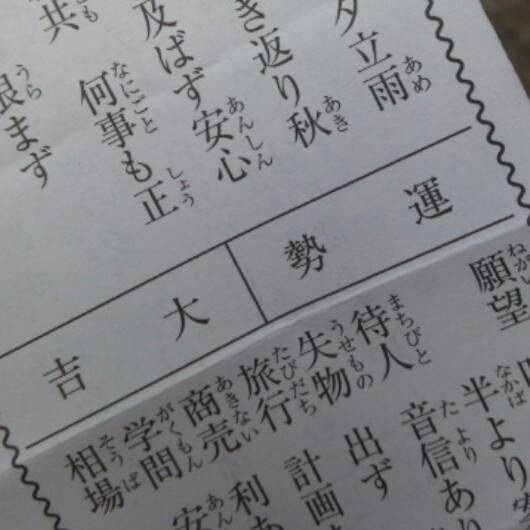 夕立雨
き返り秋
及ばず安心
何事も正
共
恨まず
運勢
大吉
願望
半より
待人 音信あり
失物 出ず
旅行 計画
商売 利
学問 安
相場